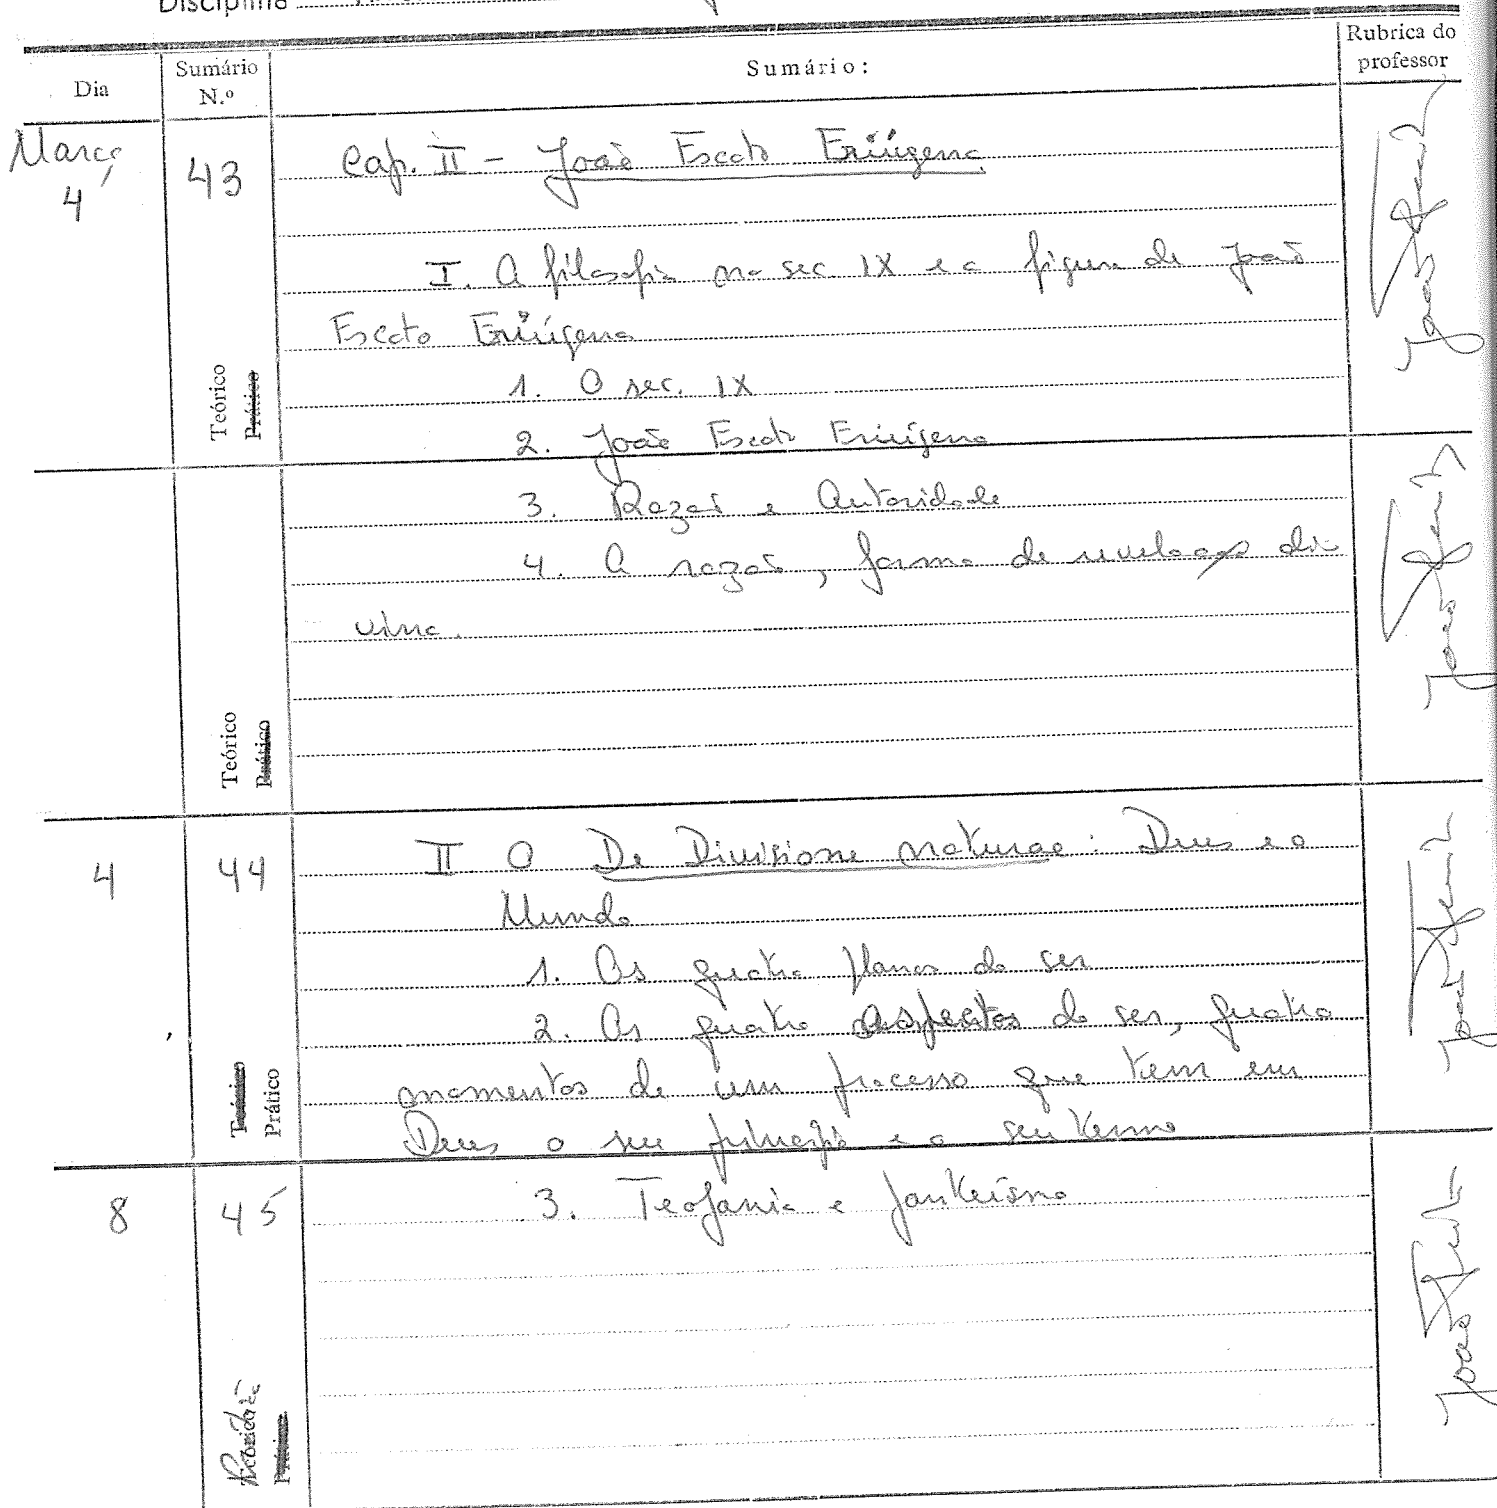 Disciplina
Dia
Sumário N.º
Sumário:
Rubrica do professor
Março 4
43
Cap. II – João Escoto Eriúgena
I. A filosofia no sec. IX e a figura de João
Escoto Eriúgena
1. O sec. IX
2. João Escoto Eriúgena
Teórico
Prático
3. Razão e Autoridade
4. A razão, forma de revelação di
vina.
Teórico
Prático
4
44
II O De Divisione naturae: Deus e o
Mundo
1. Os quatro planos do ser
2. Os quatro aspectos do ser, quatro
momentos de um processo que tem em
Deus o seu princípio e o seu termo
Teórico
Prático
8
45
3. Teofania e panteísmo
Prático
João
João
João
João